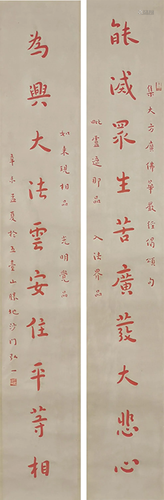 集大方廣佛華嚴經偈頌句
能滅眾生苦廣發大悲心
毗盧遮那品 入法界品
如來現相品 光明覺品
為興大法雲安住平等相